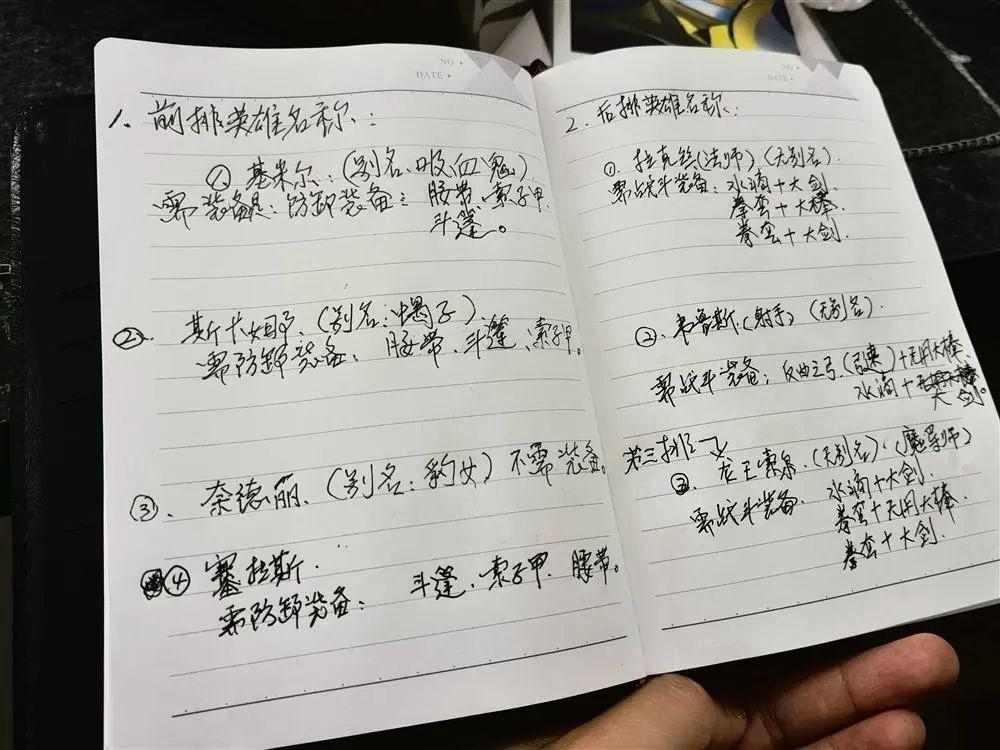 NO •
DATE •
1、前排英雄名称:
① 基米尔:(别名、吸血鬼).
需装备是:防卸装备:腰带、索子甲.
斗篷。
②、斯卡姐尔.(别名:蝎子).
需防卸装备、腰带、斗篷、索子甲。
③、奈德丽.(别名:豹女)不需装备。
④ 塞拉斯.
需防卸装备: 斗篷、索子甲、腰带。
NO •
DATE •
2、后排英雄名称:
①、拉克丝(法师)(无别名).
需战斗装备:水滴+大剑.
拳套+大棒.
拳套+大剑.
②、韦鲁斯.(射手)(无别名).
需战斗装备:反曲之弓.(引速)+无用大棒、
水滴+
大剑。
第三排
③、龙王索泉.(无别名).(魔导师)
需战斗装备. 水滴+大剑.
拳套+无用大棒.
拳套+大剑.